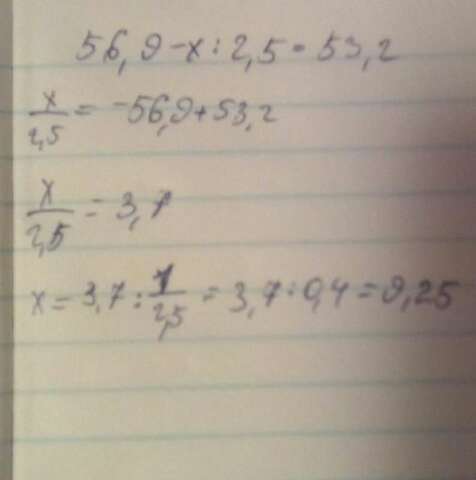 56,9-x:2,5=53,2
x/2,5 = -56,9+53,2
x/2,5 = 3,7
x=3,7:1/2,5 = 3,7:0,4=9,25